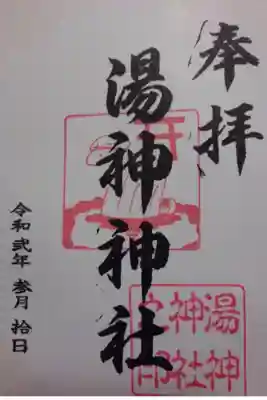 奉拝
湯神神社
湯神
神社
之印
令和弐年 参月 拾日